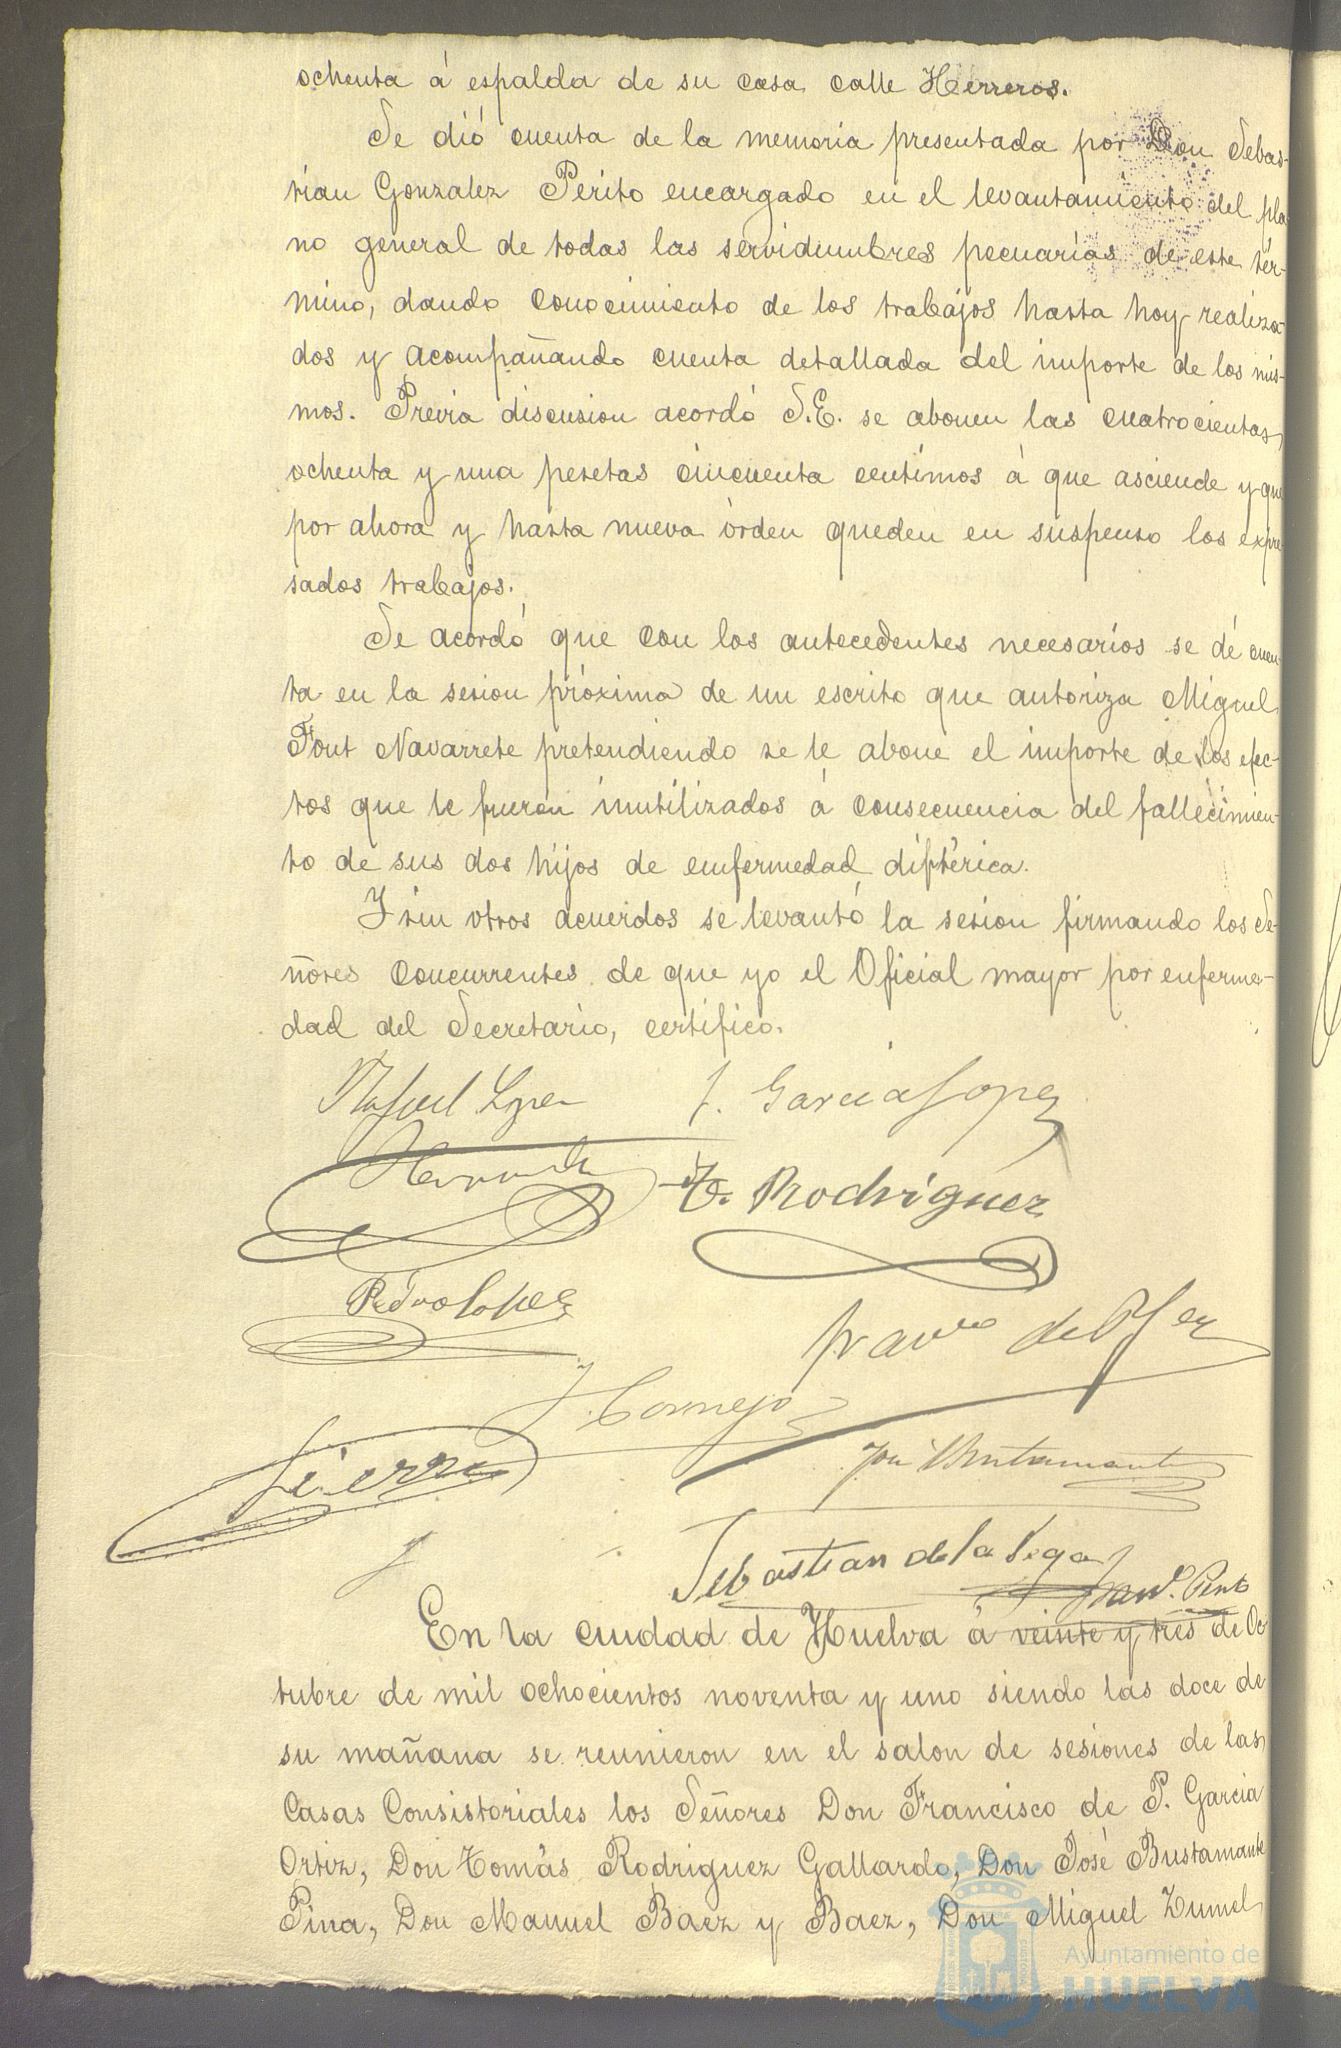 ochenta á espalda de su casa calle Herreros.
Se dió cuenta de la memoria presentada por Don Sebas-
tian Gonzalez Perito encargado en el levantamiento del pla-
no general de todas las servidumbres pecuarias de este tér-
mino, dando conocimiento de los trabajos hasta hoy realiza-
dos y acompañando cuenta detallada del importe de los mis-
mos. Previa discusion acordó S.E. se abonen las cuatrocientas
ochenta y una pesetas cincuenta centimos á que asciende y que
por ahora y hasta nueva órden queden en suspenso los expre
sados trabajos.
Se acordó que con los antecedentes necesarios se dé cuen-
ta en la sesion próxima de un escrito que autoriza Miguel
Font Navarrete pretendiendo se le abone el importe de los efec-
tos que le fueron inutilizados á consecuencia del fallecimien-
to de sus dos hijos de enfermedad diftérica.
Y sin otros acuerdos se levantó la sesion firmando los Se-
ñores concurrentes de que yo el Oficial mayor por enferme-
dad del Secretario, certifico.
Rafael Lopez J. Garcia Lopez
Hernandez T. Rodriguez
Pedro Lopez
J. Cornejo
Sierra José Bustamante
Sebastian de la Vega
En la ciudad de Huelva á veinte y tres de Oc
tubre de mil ochocientos noventa y uno siendo las doce de
su mañana se reunieron en el salon de sesiones de las
Casas Consistoriales los Señores Don Francisco de P. Garcia
Ortiz, Don Tomás Rodriguez Gallardo, Don José Bustamante
Pina, Don Manuel Baez y Baez, Don Miguel Zumel
Ayuntamiento de
HUELVA